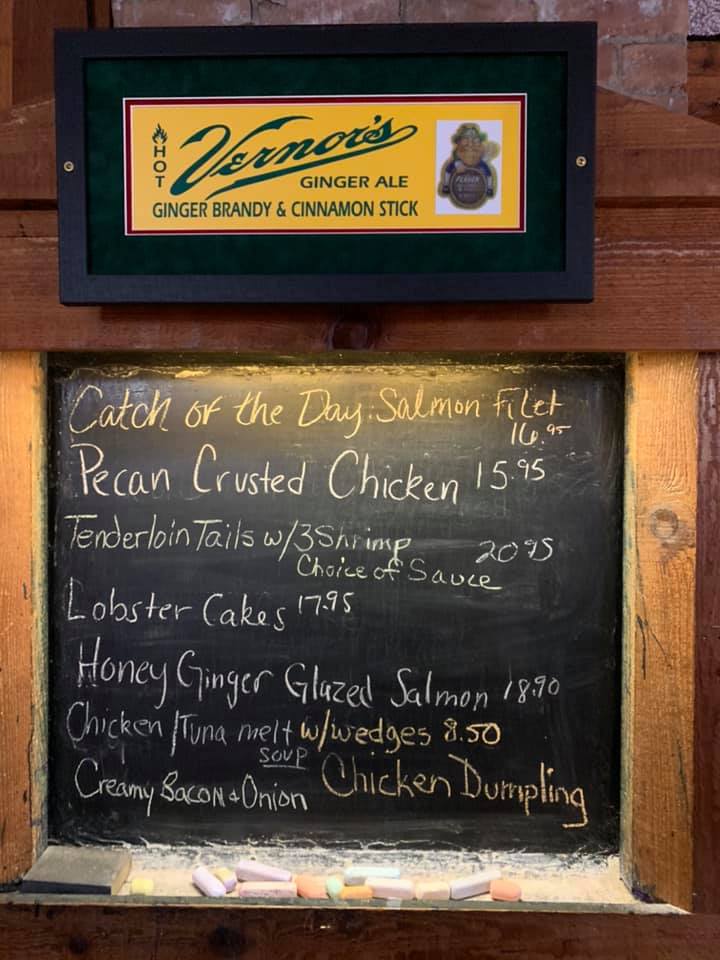 HOT
Vernor's
GINGER ALE
GINGER BRANDY & CINNAMON STICK
Catch of the Day: Salmon Filet
16.95
Pecan Crusted Chicken 15.95
Tenderloin Tails w/3 Shrimp 20.95
Choice of Sauce
Lobster Cakes 17.95
Honey Ginger Glazed Salmon 18.90
Chicken/Tuna melt w/wedges 8.50
SOUP
Creamy Bacon + Onion Chicken Dumpling